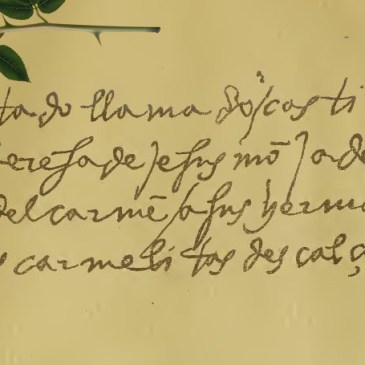 tado llamado casti
eresa de Jesus mō Ja de
del carmē a sus herma
s carmelitas descalç